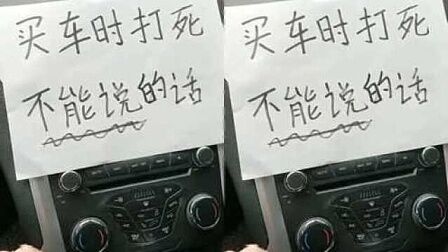 买车时打死
不能说的话
买车时打死
不能说的话